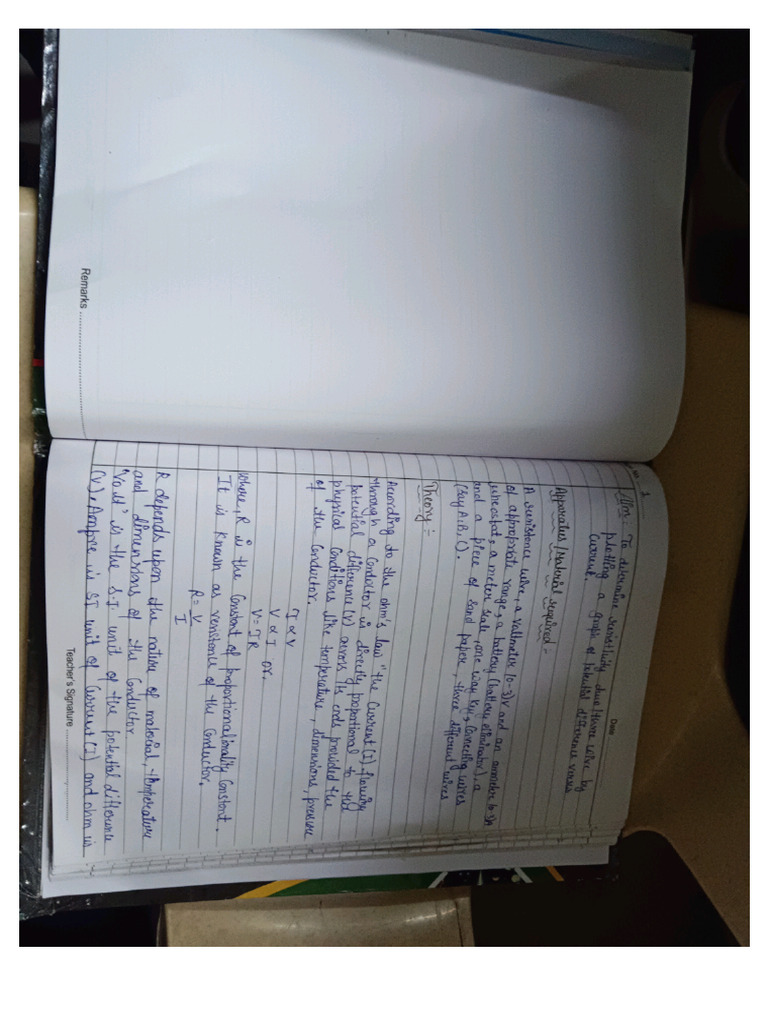 Remarks
Date
1
Aim:- To determine resistivity two/three wire by
plotting a graph of potential difference versus
current.
Apparatus/Material required -
A resistance wire, a voltmeter (0-3)V and an ammeter
of appropriate range, a battery (battery eliminator), a
rheostat, a meter scale, one way key, connecting wires
and a piece of sand paper, three different wires
(say A, B, C).
Theory :-
According to the ohm's law "the current (I) flowing
through a conductor is directly proportional to the
potential difference (V) across its ends provided the
physical conditions like temperature, dimensions, pressure
of the conductor.
I ∝ V
V ∝ I or.
V = IR
where, R is the constant of proportionalionality constant.
It is known as resistance of the conductor.
R = V
I
R depends upon the nature of material, temperature
and dimensions of the conductor.
'Volt' is the S.I unit of the potential difference
(V), Ampere is SI unit of current (I) and ohm is
Teacher's Signature